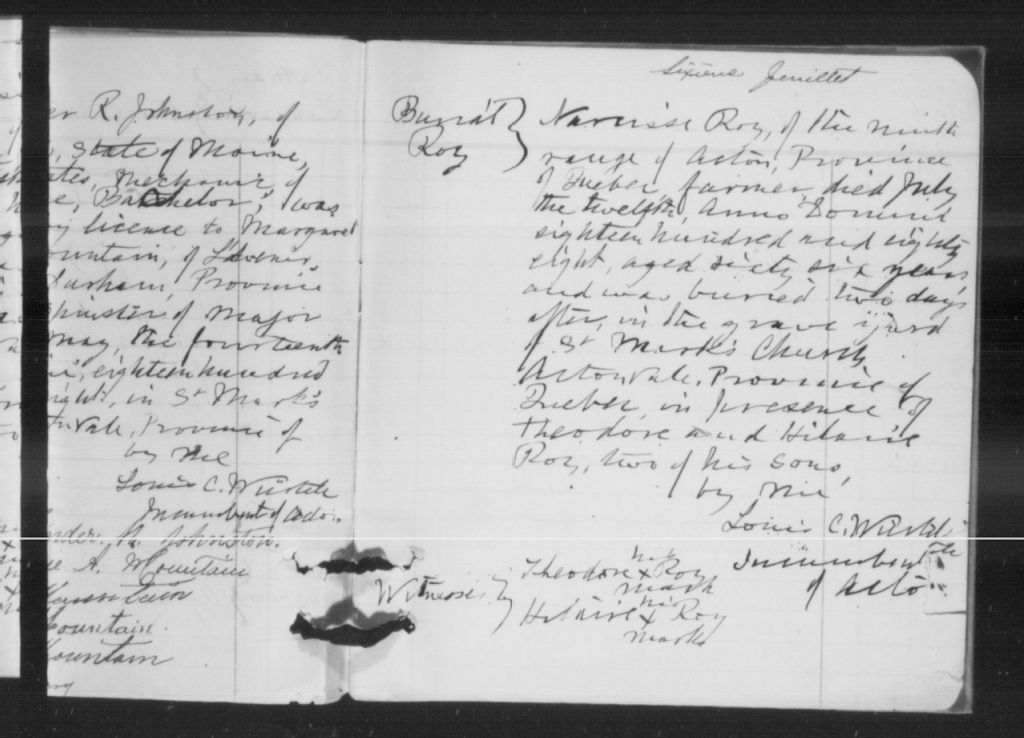 R. Johnston, of
State of Maine,
mechanic, of
Bachelor, was
license to Margaret
ountain, of L'Avenir,
Durham, Province
minister of Major
May, the fourteenth
eighteen hundred
in St Mark's
Province of
by me
Louis C. Würtele
Incumbent of Acton
R. Johnston.
A. Mountain
Mountain
ountain.
ountain
Sixième feuillet
Burial
Roy
Narcisse Roy, of the ninth
range of Acton, Province
of Quebec, farmer, died July
the twelfth, Anno Domini
eighteen hundred and eighty
eight, aged sixty six years
and was buried two days
after, in the grave yard
of St Mark's Church,
Actonvale, Province of
Quebec, in presence of
Theodore and Hilaire
Roy, two of his sons,
by me,
Louis C. Würtele
Incumbent
of Acton
Witnesses
Theodore his x mark Roy
Hilaire his x mark Roy